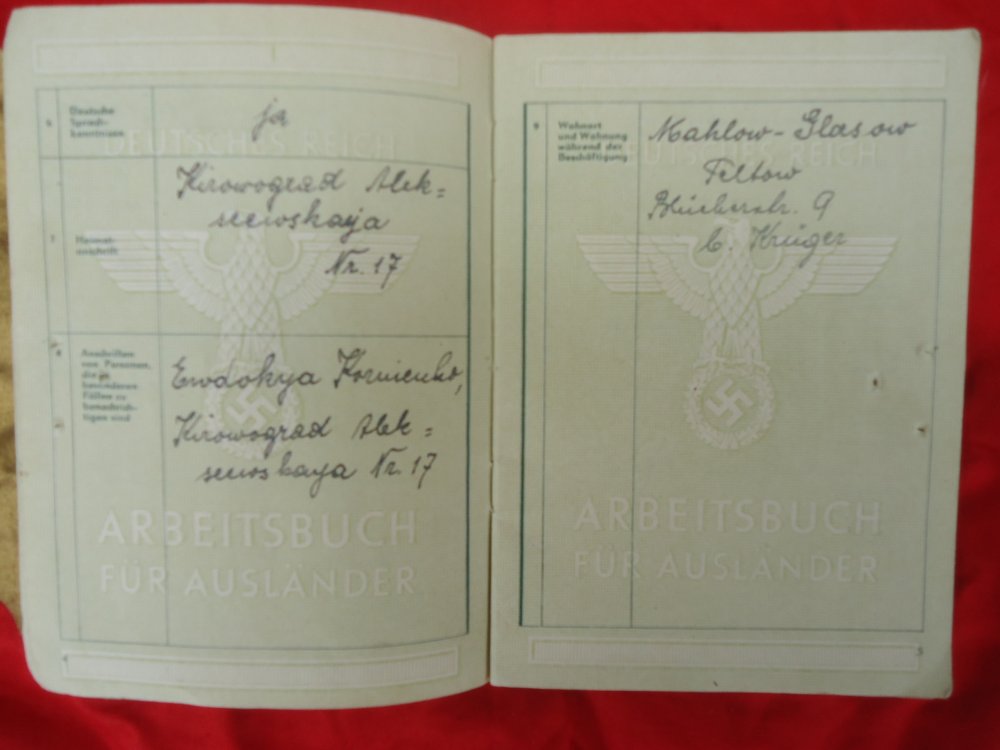 6 Deutsche
Sprach-
kenntnisse
ja
DEUTSCHES REICH
7 Heimat-
anschrift
Kirowograd Alek=
seewskaja
Nr. 17
8 Anschriften
von Personen,
die in
besonderen
Fällen zu
benachrich-
tigen sind
Ewdokya Kornienko,
Kirowograd Alek=
seewskaya Nr. 17
ARBEITSBUCH
FÜR AUSLÄNDER
4
9 Wohnort
und Wohnung
während der
Beschäftigung
Mahlow-Glasow
Teltow
Blücherstr. 9
b. Krüger
DEUTSCHES REICH
ARBEITSBUCH
FÜR AUSLÄNDER
5